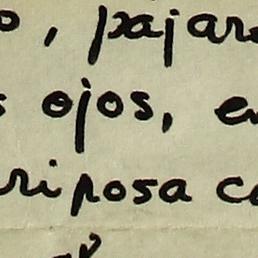 o, pajar
s ojos, e
riposa c